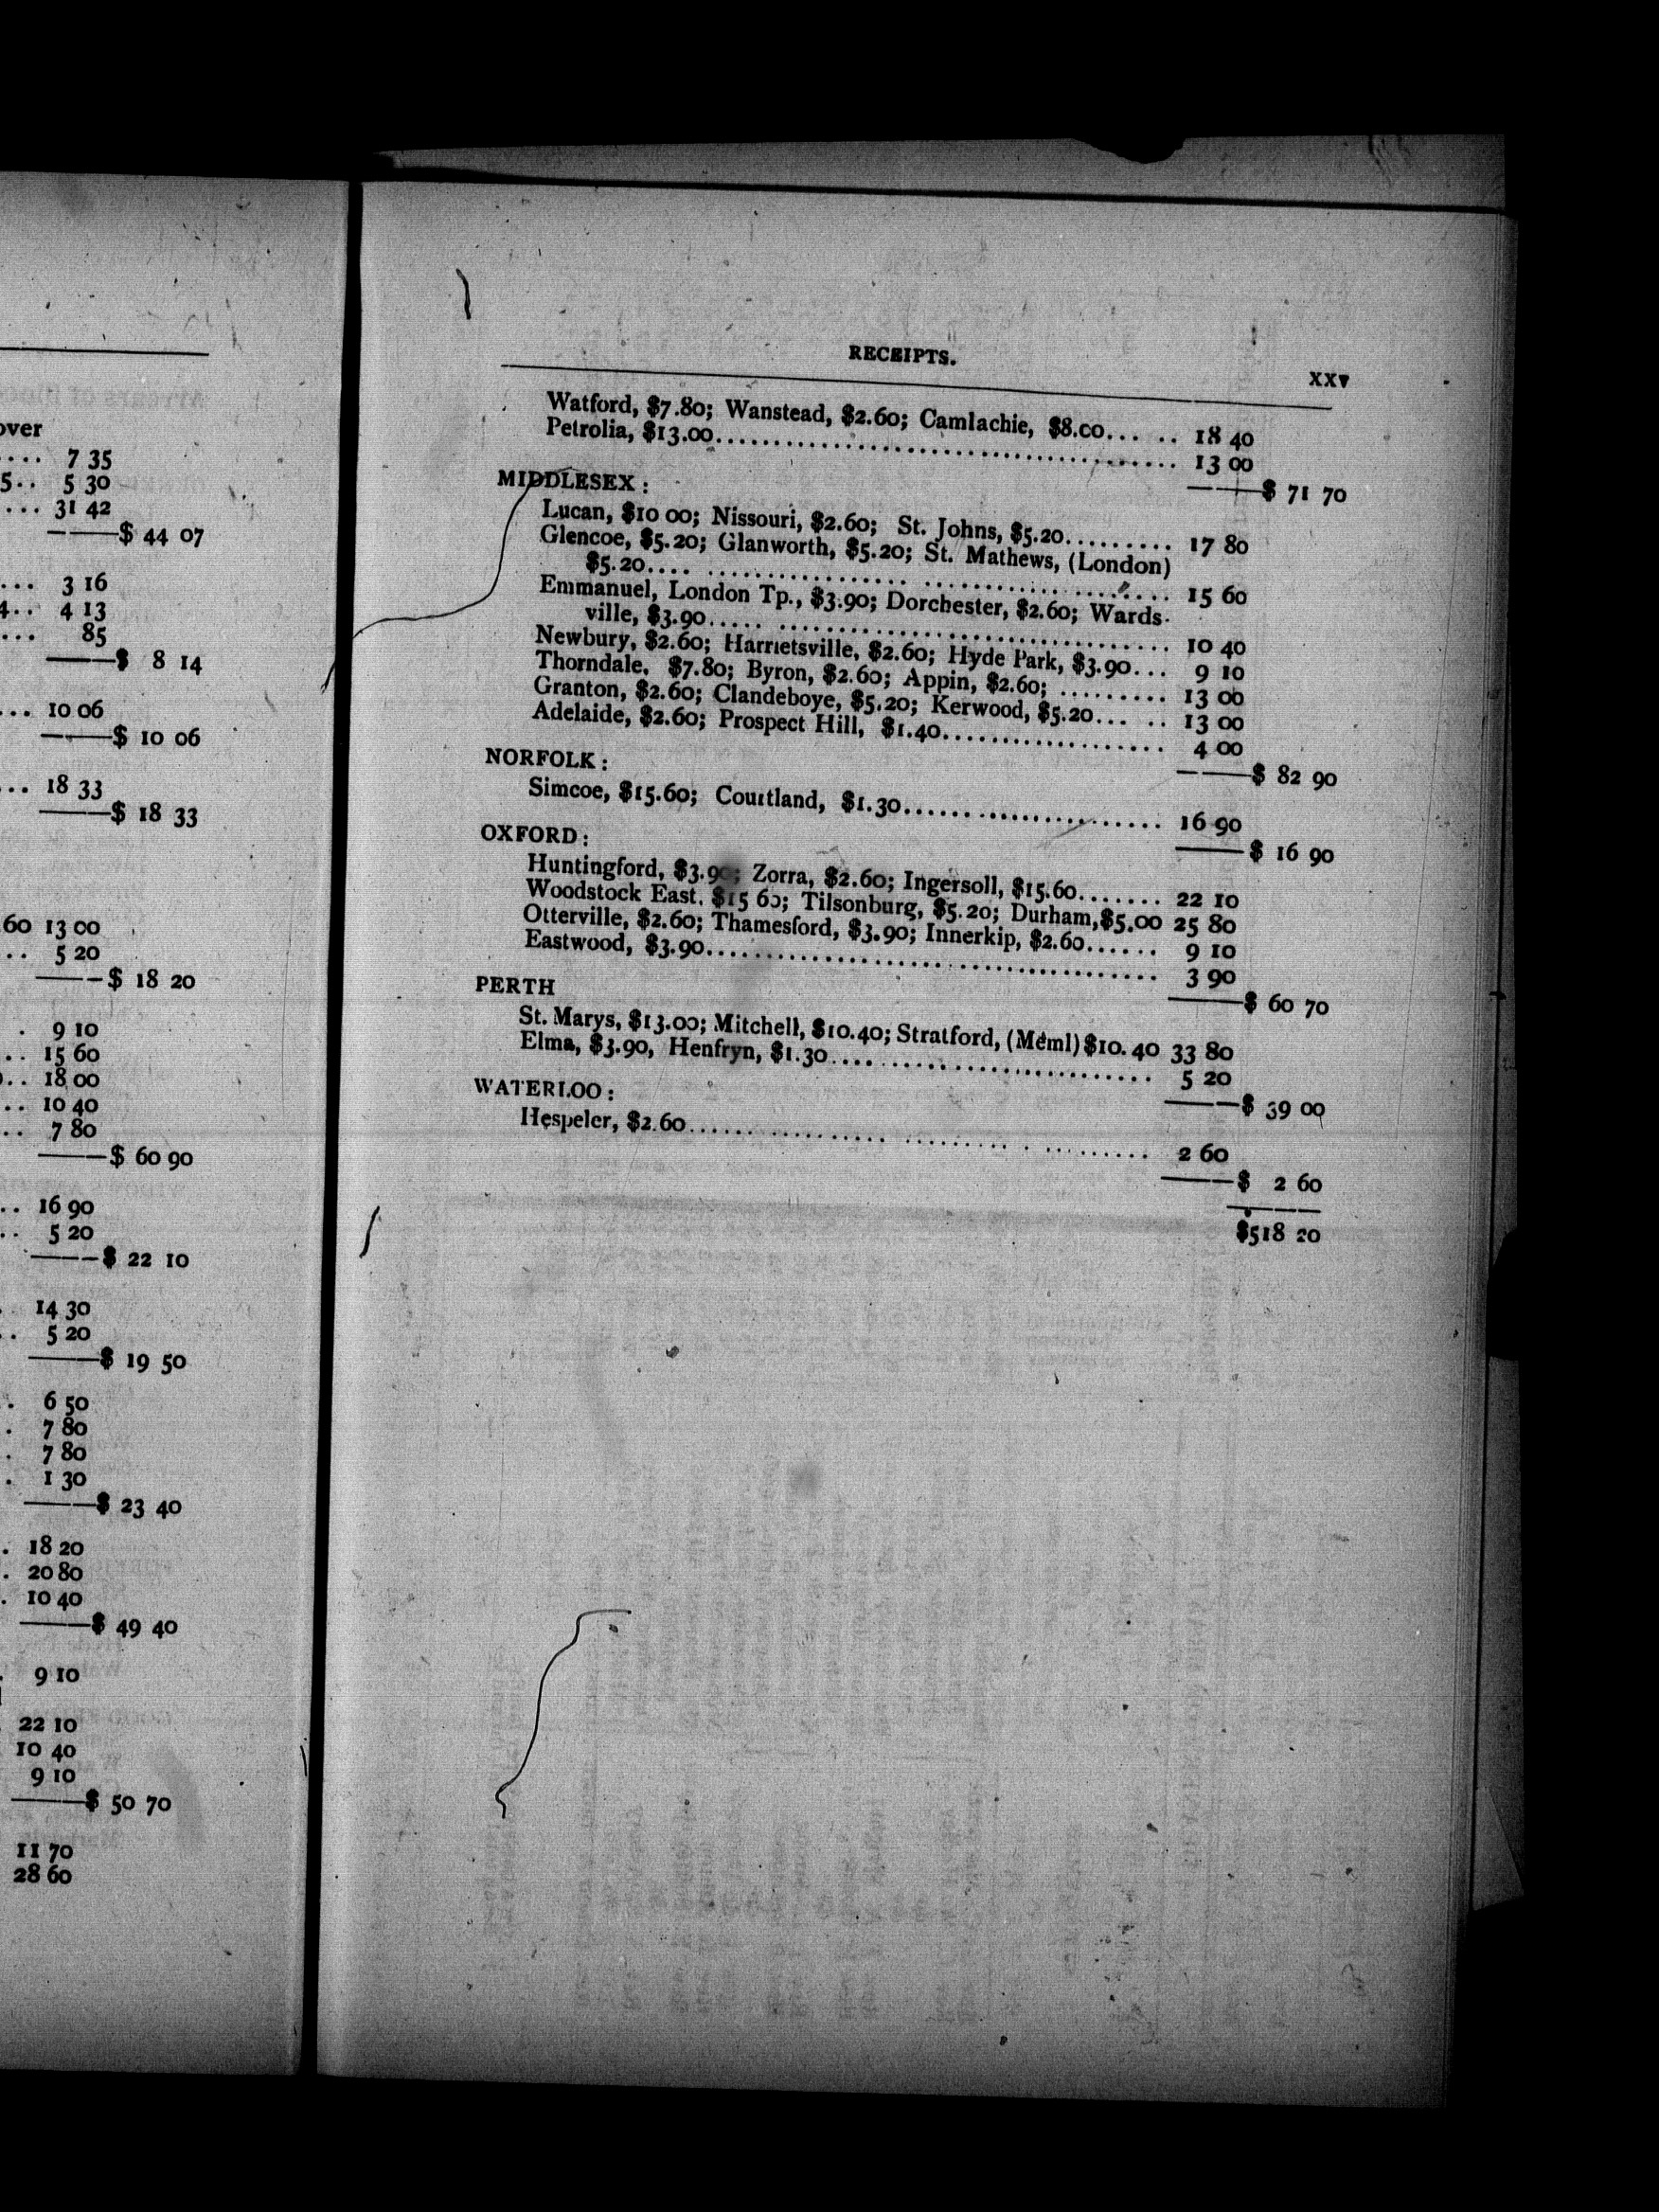 over
.... 7 35
5.. 5 30
... 31 42
$ 44 07
... 3 16
4.. 4 13
... 85
$ 8 14
... 10 06
$ 10 06
... 18 33
$ 18 33
60 13 00
.. 5 20
$ 18 20
. 9 10
.. 15 60
.. 18 00
.. 10 40
.. 7 80
$ 60 90
.. 16 90
.. 5 20
$ 22 10
. 14 30
.. 5 20
$ 19 50
. 6 50
. 7 80
. 7 80
. 1 30
$ 23 40
. 18 20
. 20 80
. 10 40
$ 49 40
. 9 10
22 10
10 40
9 10
$ 50 70
11 70
28 60
RECEIPTS.
xxv
Watford, $7.80; Wanstead, $2.60; Camlachie, $8.00... .. 18 40
Petrolia, $13.00........................................ 13 00
$ 71 70
MIDDLESEX :
Lucan, $10 00; Nissouri, $2.60; St. Johns, $5.20......... 17 80
Glencoe, $5.20; Glanworth, $5.20; St. Mathews, (London)
$5.20.... ................. ..................... 15 60
Emmanuel, London Tp., $3.90; Dorchester, $2.60; Wards-
ville, $3.90..... .................................. 10 40
Newbury, $2.60; Harrietsville, $2.60; Hyde Park, $3.90... 9 10
Thorndale, $7.80; Byron, $2.60; Appin, $2.60; ......... 13 00
Granton, $2.60; Clandeboye, $5,20; Kerwood, $5.20... .. 13 00
Adelaide, $2.60; Prospect Hill, $1.40................... 4 00
$ 82 90
NORFOLK :
Simcoe, $15.60; Courtland, $1.30...... .................. 16 90
$ 16 90
OXFORD :
Huntingford, $3.90; Zorra, $2.60; Ingersoll, $15.60....... 22 10
Woodstock East, $15 60; Tilsonburg, $5.20; Durham,$5.00 25 80
Otterville, $2.60; Thamesford, $3.90; Innerkip, $2.60...... 9 10
Eastwood, $3.90....................................... 3 90
$ 60 70
PERTH
St. Marys, $13.00; Mitchell, $10.40; Stratford, (Meml)$10.40 33 80
Elma, $3.90, Henfryn, $1.30............................ 5 20
$ 39 00
WATERLOO :
Hespeler, $2.60...... ........... ......... . ......... 2 60
$ 2 60
$518 20